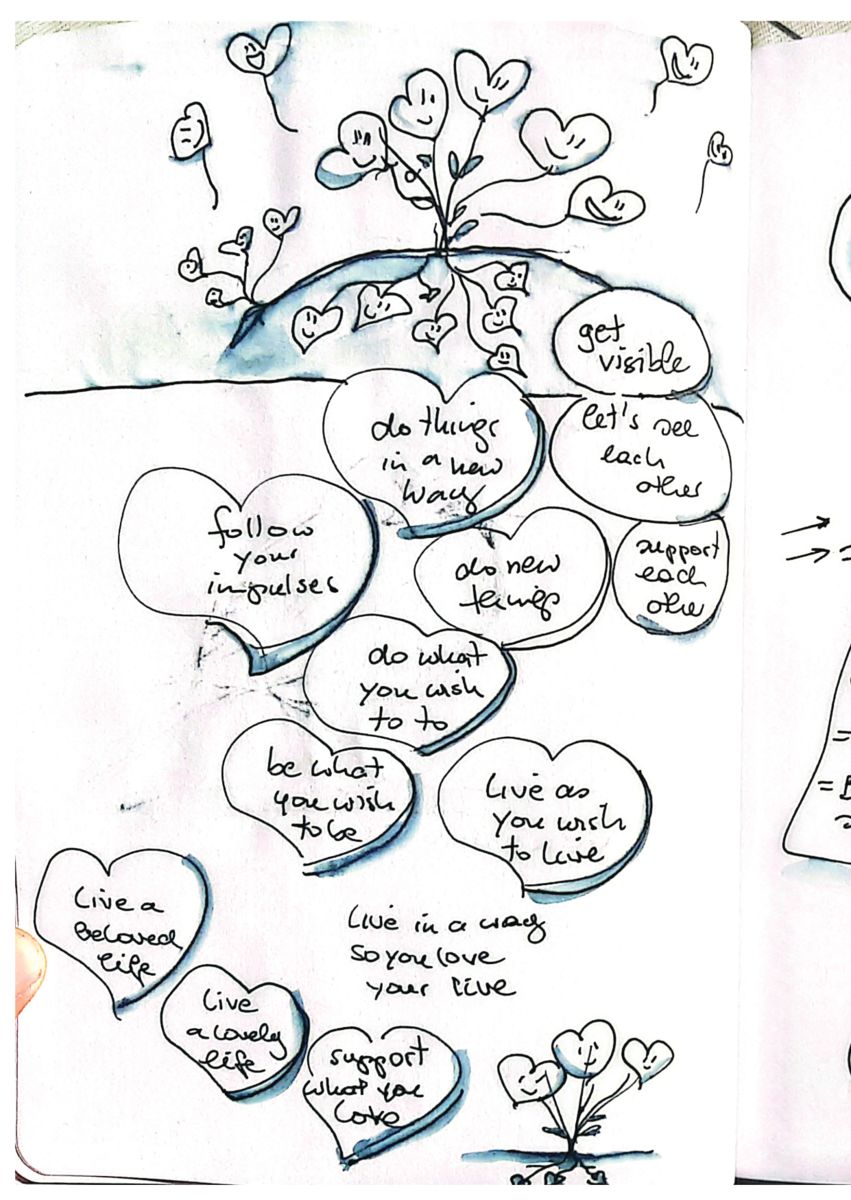 get
visible
let's see
each
other
do things
in a new
way
follow
your
impulses
do new
things
support
each
other
do what
you wish
to to
be what
you wish
to be
live as
you wish
to live
live a
beloved
life
live in a way
so you love
your live
live
a lovely
life
support
what you
love